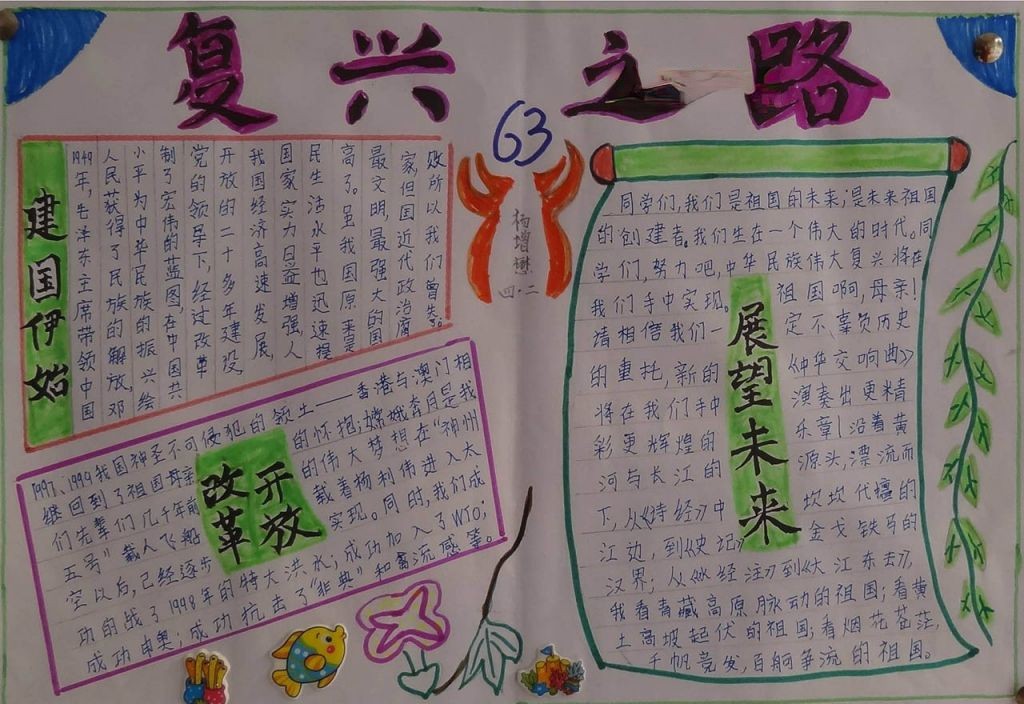 复兴之路
63
杨增懋
四.二
建国伊始
1949年,毛泽东主席带领中国
人民获得了民族的解放,邓
小平为中华民族的振兴绘
制了宏伟的蓝图在中国共
党的领导下,经过改革
开放的二十多年建设,
我国经济高速发展,
国家实力日益增强人
民生活水平也迅速提
高了。虽我国原来是
最文明,最强大的国
家,但国近代政治腐
败所以我们曾失。
改革
开放
1997、1999我国神圣不可侵犯的领土——香港与澳门相
继回到了祖国母亲的怀抱;嫦娥奔月是我
们先辈们几千年前的伟大梦想在“神州
五号”载人飞船载着杨利伟进入太
空以后,已经逐步实现。同时,我们成
功的战了1998年的特大洪水;成功加入了WTO;
成功申奥;成功抗击了“非典”和禽流感等。
展望未来
同学们,我们是祖国的未来;是未来祖国
的创建者,我们生在一个伟大的时代。同
学们,努力吧,中华民族伟大复兴将在
我们手中实现。祖国啊,母亲!
请相信我们一定不辜负历史
的重托,新的《中华交响曲》
将在我们手中演奏出更精
彩更辉煌的乐章!沿着黄
河与长江的源头,漂流而
下,从《诗经》中坎坎代檀的
江边,到《史记》金戈铁马的
汉界;从《水经注》到《大江东去》,
我看青藏高原脉动的祖国;看黄
土高坡起伏的祖国;看烟花苍茫,
千帆竞发,百舸争流的祖国。